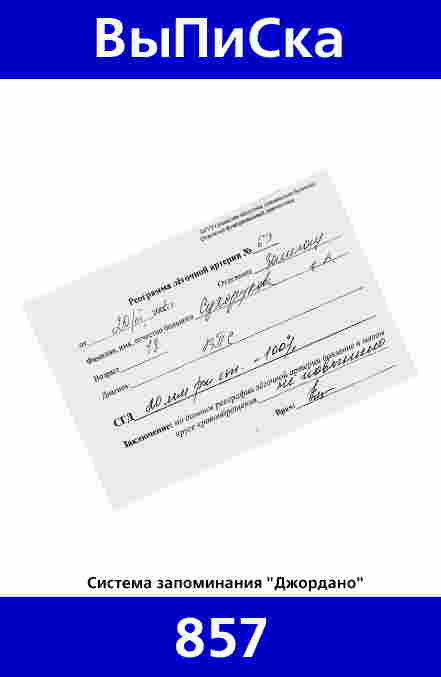 ВыПиСка
Реограмма лёгочной артерии № 69
от 20/
Отделение
Фамилия, имя, отчество больного Сухоруков
Возраст 18
Диагноз ВПС
СГД 20 мм рт ст - 100%
Заключение: по данным реографии лёгочной артерии давление в малом
круге кровообращения не повышено
Врач:
Система запоминания "Джордано"
857